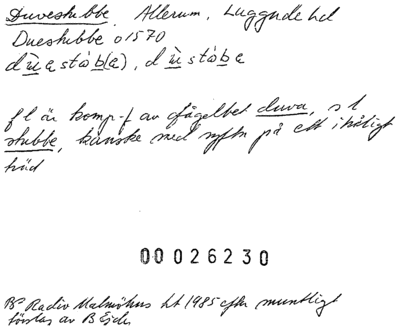 Duvestubbe, Allerum, Luggude hd
Duestubbe o 1570
dù̲a̲stáb(a), dù̲stába
f l är komp-f av fågelbet duva, s l
stubbe, kanske med syftn på ett ihåligt
träd
00026230
Radio Malmöhus ht 1985 efter muntligt
förslag av B Ejder